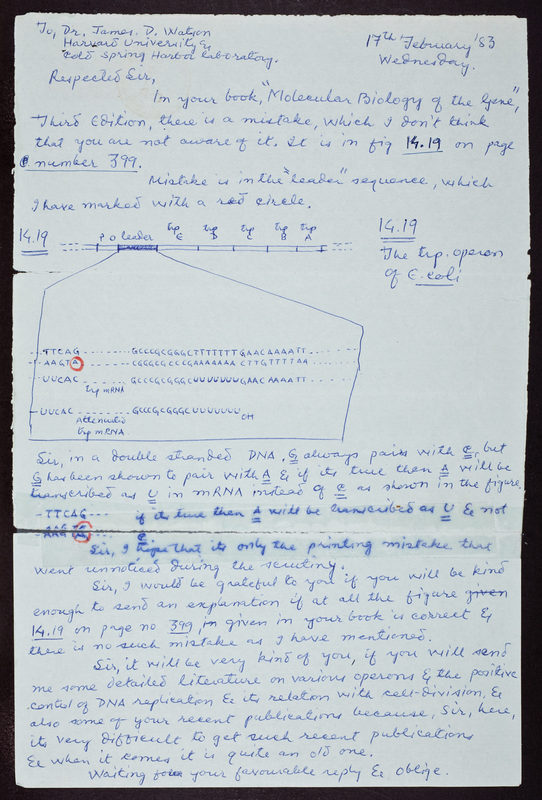 To, Dr. James. D. Watson
Harvard University &
Cold Spring Harbor Laboratory.
17th February '83
Wednesday.
Respected Sir,
In your book, "Molecular Biology of the Gene",
Third Edition, there is a mistake, which I don't think
that you are not aware of it. It is in fig 14.19 on page
number 399.
Mistake is in the "leader" sequence, which
I have marked with a red circle.
14.19
P O leader trp E trp D trp C trp B trp A
14.19
The trp. operon
of E. coli
--TTCAG------GCCCGCGGGCTTTTTTTGAACAAAATT---
--AAGTA------CGGGCGCCCGAAAAAAACTTGTTTTAA
--UUCAC------GCCCGCGGGCUUUUUUUGAACAAAATT---
trp mRNA
--UUCAC------GCCCGCGGGCUUUUUUU OH
Attenuated
trp mRNA
Sir, in a double stranded DNA, G always pairs with C, but
G has been shown to pair with A & if its true then A will be
transcribed as U in mRNA instead of C as shown in the figure
-TTCAG--- if its true then A will be transcribed as U & not
-AAGT --- C
Sir, I hope that its only the printing mistake that
went unnoticed during the scrutiny.
Sir, I would be grateful to you if you will be kind
enough to send an explanation if at all the figure given
14.19 on page no 399, in given in your book is correct &
there is no such mistake as I have mentioned.
Sir, it will be very kind of you, if you will send
me some detailed literature on various operons & the positive
control of DNA replication & its relation with cell-division, &
also some of your recent publications because, Sir, here,
its very difficult to get such recent publications
& when it comes it is quite an old one.
Waiting your favourable reply & oblige.